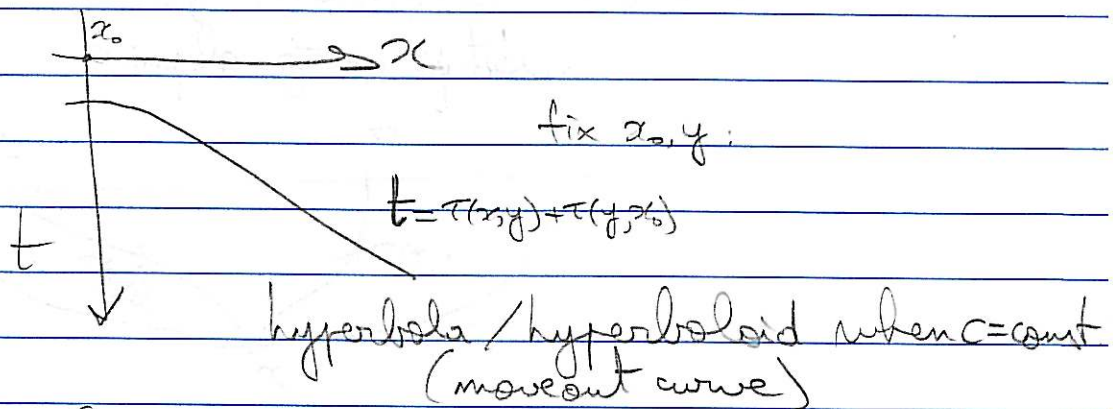 x₀
x
fix x₀, y:
t = τ(x,y) + τ(y,x₀)
t
hyperbola / hyperboloid when c=const
(moveout curve)